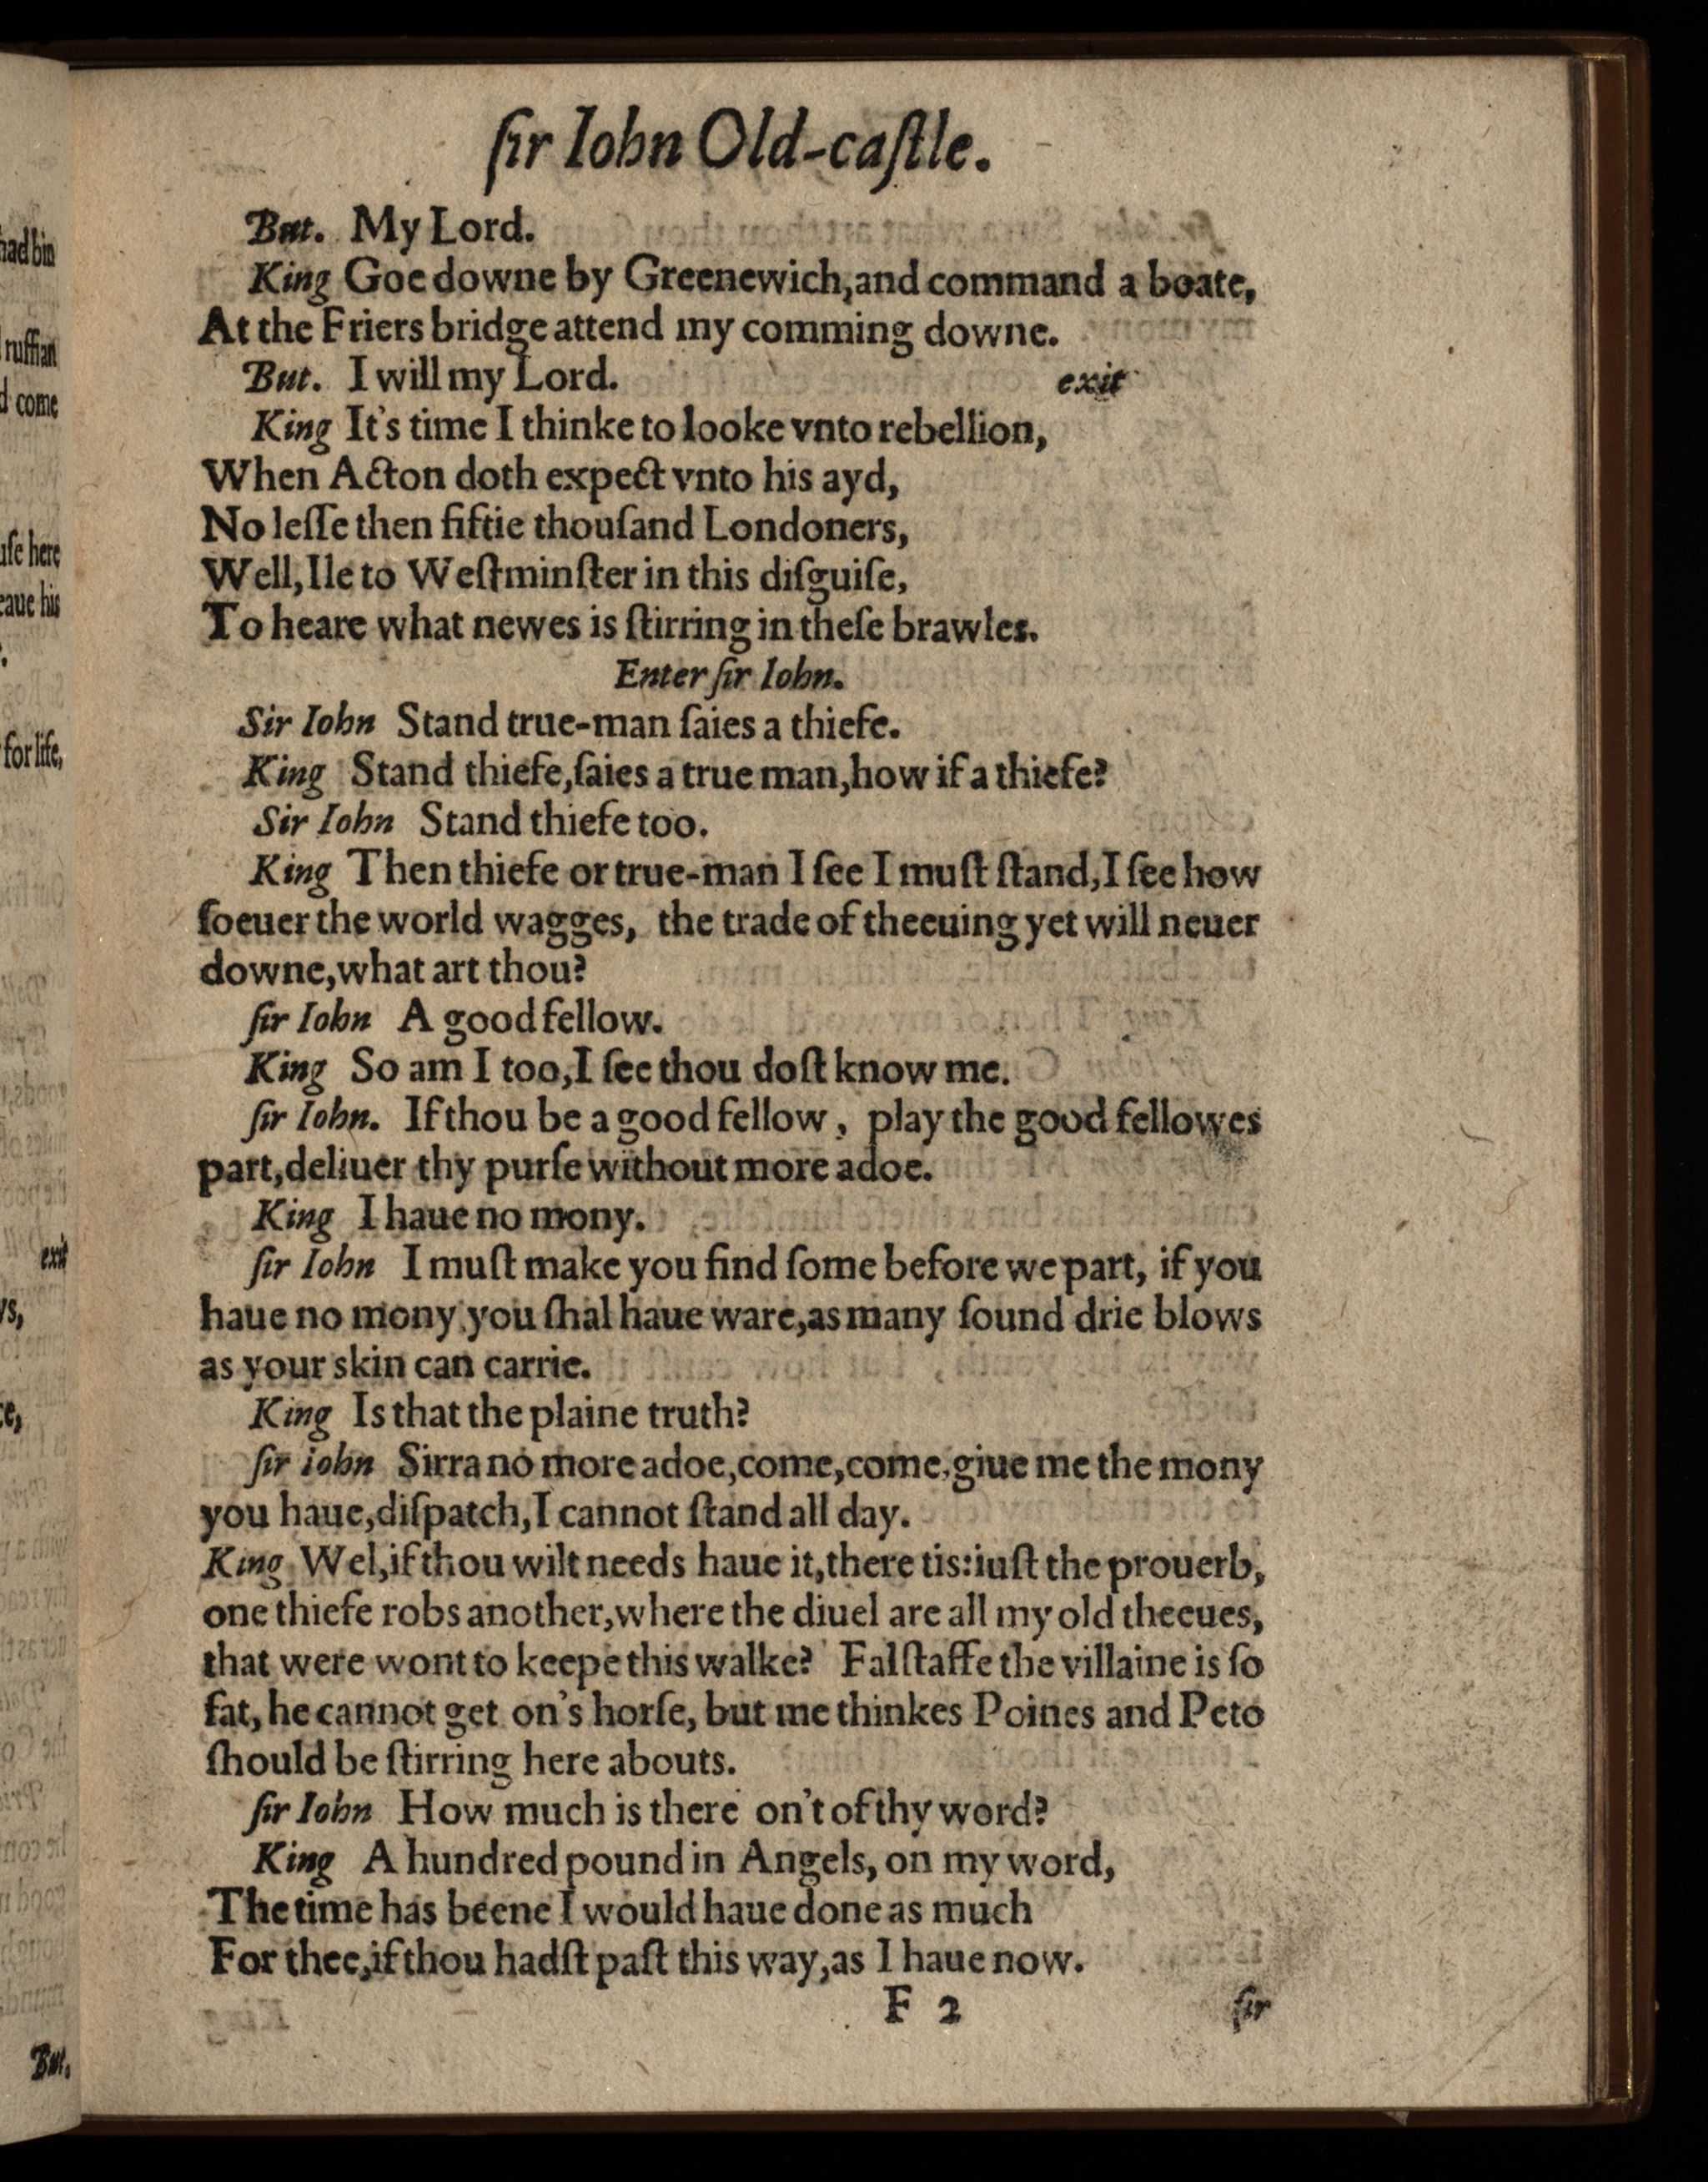 ſir Iohn Old-caſtle.
But. My Lord.
King Goe downe by Greenewich,and command a boate,
At the Friers bridge attend my comming downe.
But. I will my Lord. exit
King It's time I thinke to looke vnto rebellion,
When Acton doth expect vnto his ayd,
No leſſe then fiftie thouſand Londoners,
Well,Ile to Weſtminſter in this diſguiſe,
To heare what newes is ſtirring in theſe brawles.
Enter ſir Iohn.
Sir Iohn Stand true-man ſaies a thiefe.
King Stand thiefe,ſaies a true man,how if a thiefe?
Sir Iohn Stand thiefe too.
King Then thiefe or true-man I ſee I muſt ſtand,I ſee how
ſoeuer the world wagges, the trade of theeuing yet will neuer
downe,what art thou?
ſir Iohn A good fellow.
King So am I too,I ſee thou doſt know me.
ſir Iohn. If thou be a good fellow, play the good fellowes
part,deliuer thy purſe without more adoe.
King I haue no mony.
ſir Iohn I muſt make you find ſome before we part, if you
haue no mony you ſhal haue ware,as many ſound drie blows
as your skin can carrie.
King Is that the plaine truth?
ſir iohn Sirra no more adoe,come,come,giue me the mony
you haue,diſpatch,I cannot ſtand all day.
King Wel,if thou wilt needs haue it,there tis:iuſt the prouerb,
one thiefe robs another,where the diuel are all my old theeues,
that were wont to keepe this walke? Falſtaffe the villaine is ſo
fat, he cannot get on's horſe, but me thinkes Poines and Peto
ſhould be ſtirring here abouts.
ſir Iohn How much is there on't of thy word?
King A hundred pound in Angels, on my word,
The time has beene I would haue done as much
For thee,if thou hadſt paſt this way,as I haue now.
F 2 ſir
had bin
ruffian
come
here
his
for life,
exit
But.